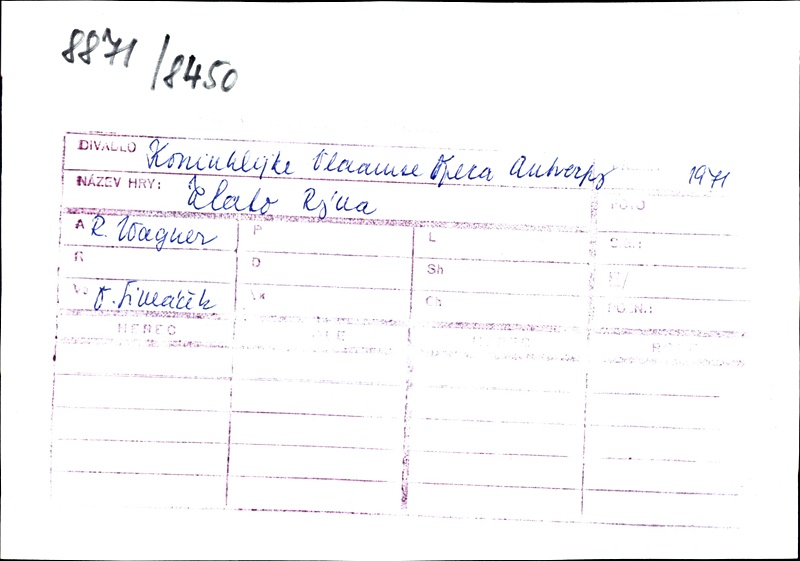 8871/8450
DIVADLO Koninklijke Vlaamse Opera Antverpy 1971
NÁZEV HRY: Zlato Rýna
FOTO
A R. Wagner P L SGN:
R D Sh
Vs O. Šimáček Vx Ch POZN.:
HEREC ROLE HEREC ROLE